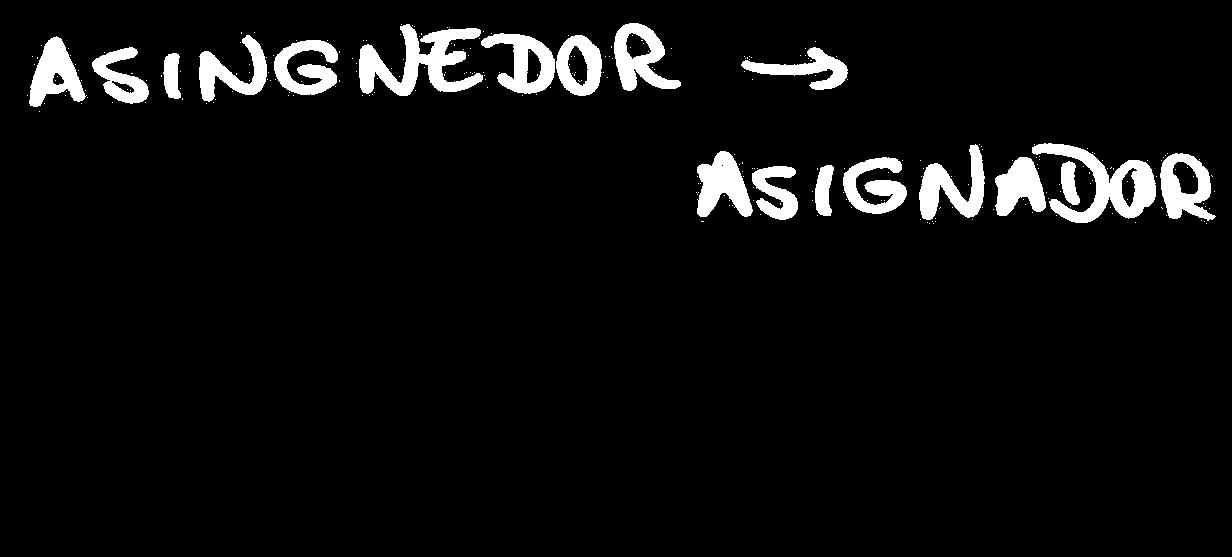 ASINGNEDOR →
ASIGNADOR